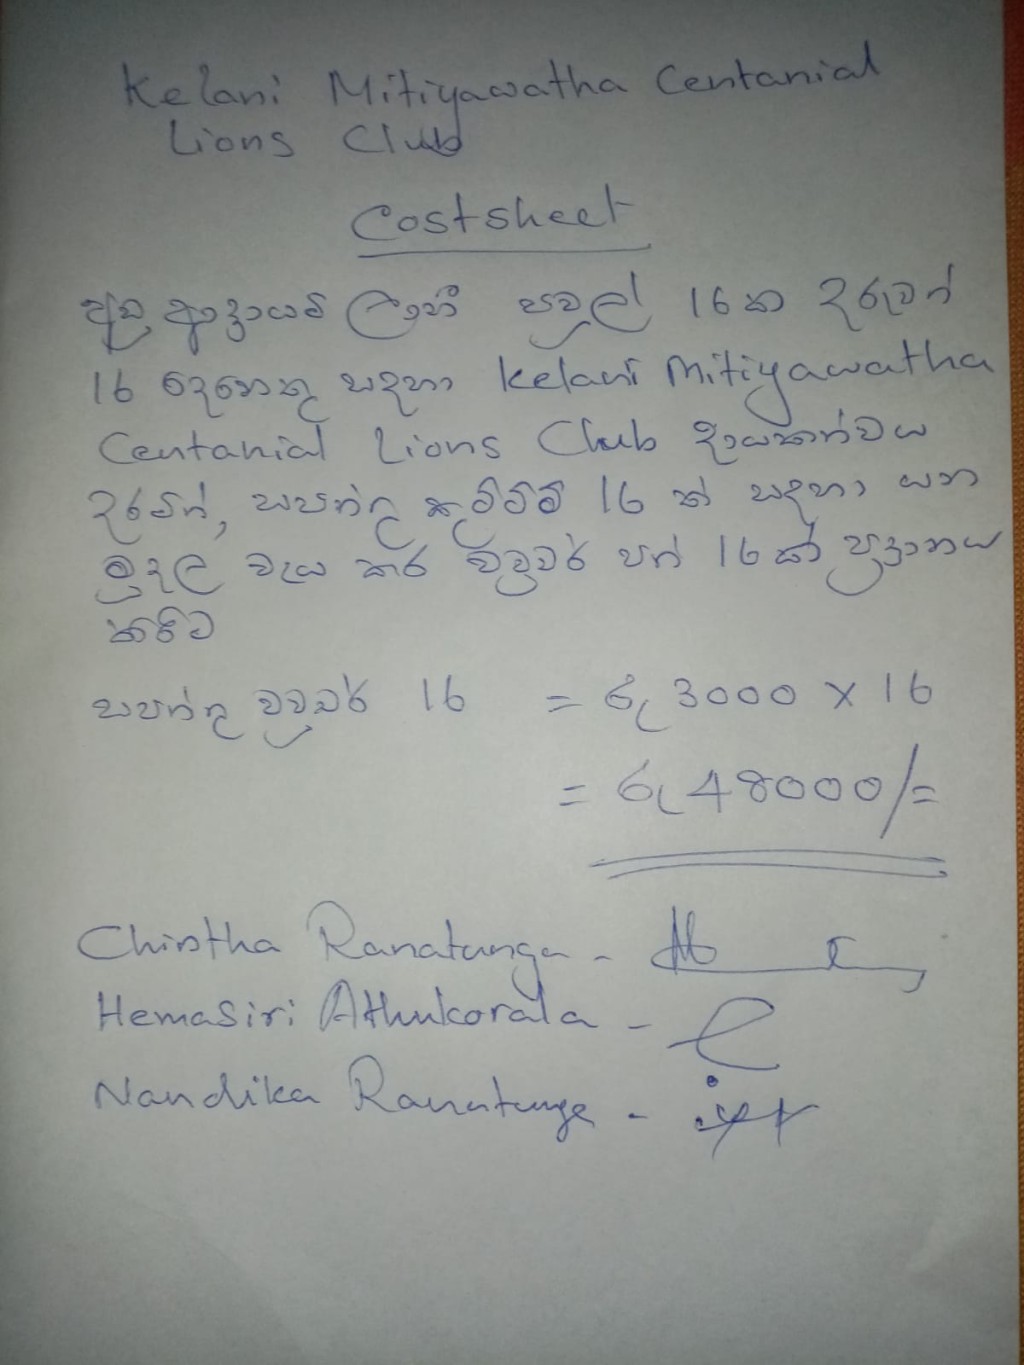 Kelani Mitiyawatha Centanial
Lions Club
Costsheet
අඩු ආදායම් ලාභී පවුල් 16ක දරුවන්
16 දෙනෙකු සඳහා Kelani Mitiyawatha
Centanial Lions Club දායකත්වය
දරමින්, සපත්තු කුට්ටම් 16 ක් සඳහා යන
මුදල වැය කර වවුචර් පත් 16ක් ප්‍රදානය
කිරීම
සපත්තු වවුචර් 16 = රු 3000 x 16
= රු 48000/=
Chintha Ranatunga -
Hemasiri Athukorala -
Nandika Ranatunge -